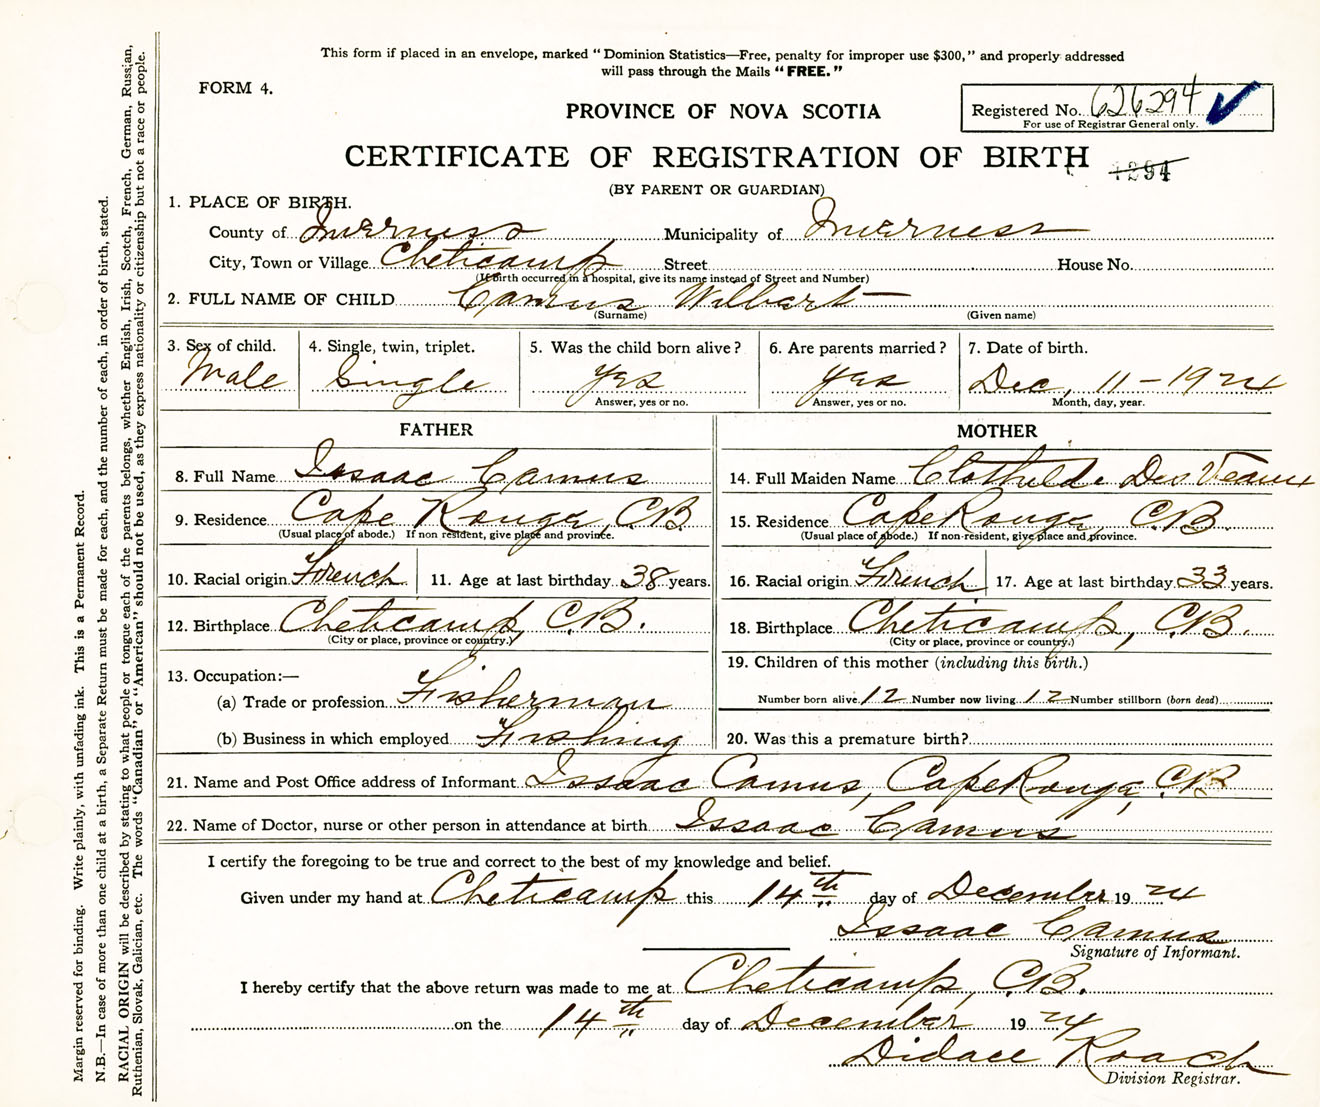 This form if placed in an envelope, marked "Dominion Statistics—Free, penalty for improper use $300," and properly addressed
will pass through the Mails "FREE."
FORM 4.
PROVINCE OF NOVA SCOTIA
Registered No. 626294
For use of Registrar General only.
CERTIFICATE OF REGISTRATION OF BIRTH
1294
(BY PARENT OR GUARDIAN)
1. PLACE OF BIRTH.
County of Inverness Municipality of Inverness
City, Town or Village Cheticamp Street House No.
(If birth occurred in a hospital, give its name instead of Street and Number)
2. FULL NAME OF CHILD Camus Wilbert
(Surname) (Given name)
3. Sex of child. 4. Single, twin, triplet. 5. Was the child born alive? 6. Are parents married? 7. Date of birth.
Male Single Yes Yes Dec, 11-1924
Answer, yes or no. Answer, yes or no. Month, day, year.
FATHER MOTHER
8. Full Name Issaac Camus 14. Full Maiden Name Clothilde Des Veaux
9. Residence Cape Rouge, C.B. 15. Residence Cape Rouge, C.B.
(Usual place of abode.) If non resident, give place and province. (Usual place of abode.) If non-resident, give place and province.
10. Racial origin French 11. Age at last birthday 38 years. 16. Racial origin French 17. Age at last birthday 33 years.
12. Birthplace Cheticamp, C.B. 18. Birthplace Cheticamp, C.B.
(City or place, province or country.) (City or place, province or country.)
13. Occupation:— 19. Children of this mother (including this birth.)
(a) Trade or profession Fisherman Number born alive 12 Number now living 12 Number stillborn (born dead)
(b) Business in which employed Fishing 20. Was this a premature birth?
21. Name and Post Office address of Informant Issaac Camus, Cape Rouge, C.B.
22. Name of Doctor, nurse or other person in attendance at birth Issaac Camus
I certify the foregoing to be true and correct to the best of my knowledge and belief.
Given under my hand at Cheticamp this 14th day of December 1924
Issaac Camus
Signature of Informant.
I hereby certify that the above return was made to me at Cheticamp, C.B.
on the 14th day of December 1924
Didace Roach
Division Registrar.
Margin reserved for binding. Write plainly, with unfading ink. This is a Permanent Record.
N.B.—In case of more than one child at a birth, a Separate Return must be made for each, and the number of each, in order of birth, stated.
RACIAL ORIGIN will be described by stating to what people or tongue each of the parents belongs, whether English, Irish, Scotch, French, German, Russian,
Ruthenian, Slovak, Galician, etc. The words "Canadian" or "American" should not be used, as they express nationality or citizenship but not a race or people.